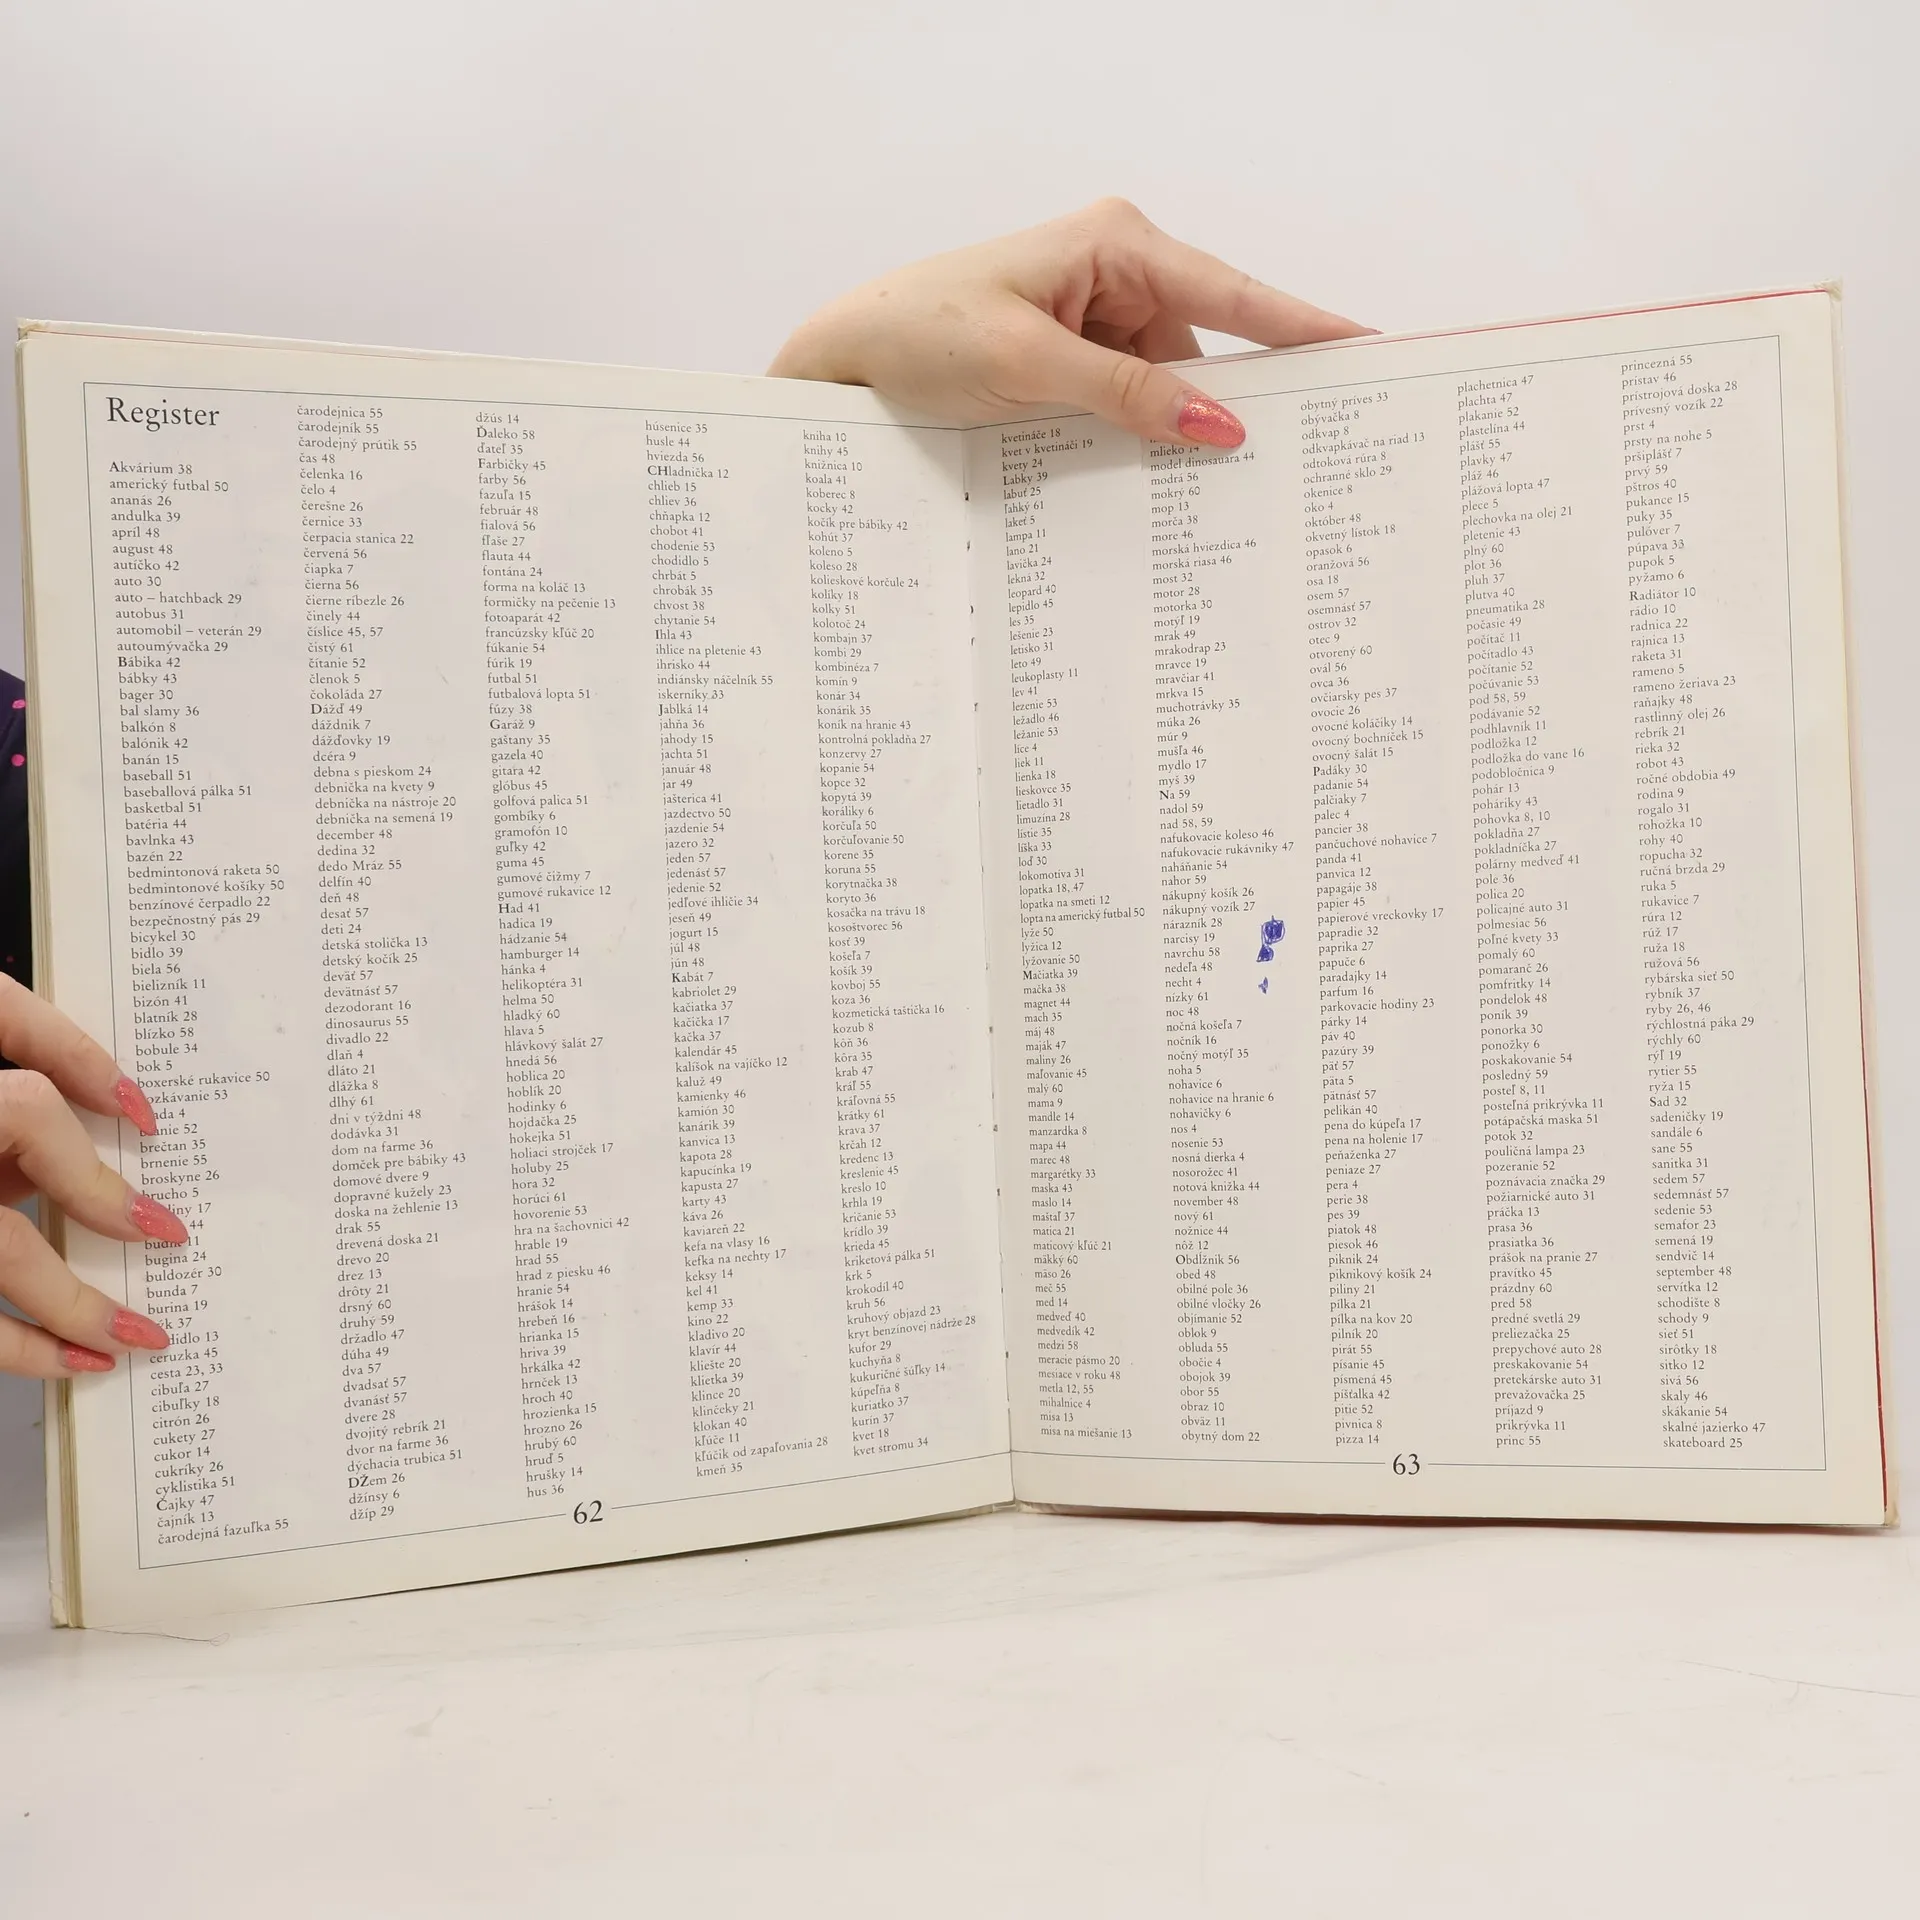 Register
Akvárium 38
americký futbal 50
ananás 26
andulka 39
apríl 48
august 48
autíčko 42
auto 30
auto – hatchback 29
autobus 31
automobil – veterán 29
autoumývačka 29
Bábika 42
bábky 43
bager 30
bal slamy 36
balkón 8
balónik 42
banán 15
baseball 51
baseballová pálka 51
basketbal 51
batéria 44
bavlnka 43
bazén 22
bedmintonová raketa 50
bedmintonové košíky 50
benzínové čerpadlo 22
bezpečnostný pás 29
bicykel 30
bidlo 39
biela 56
bielizník 11
bizón 41
blatník 28
blízko 58
bobule 34
bok 5
boxerské rukavice 50
53
4
52
brečtan 35
brnenie 55
broskyne 26
brucho 5
17
44
11
bugina 24
buldozér 30
bunda 7
burina 19
37
13
ceruzka 45
cesta 23, 33
cibuľa 27
cibuľky 18
citrón 26
cukety 27
cukor 14
cukríky 26
cyklistika 51
Čajky 47
čajník 13
čarodejná fazuľka 55
čarodejnica 55
čarodejník 55
čarodejný prútik 55
čas 48
čelenka 16
čelo 4
čerešne 26
černice 33
čerpacia stanica 22
červená 56
čiapka 7
čierna 56
čierne ríbezle 26
činely 44
číslice 45, 57
čistý 61
čítanie 52
členok 5
čokoláda 27
Dážď 49
dáždnik 7
dážďovky 19
dcéra 9
debna s pieskom 24
debnička na kvety 9
debnička na nástroje 20
debnička na semená 19
december 48
dedina 32
dedo Mráz 55
delfín 40
deň 48
desať 57
deti 24
detská stolička 13
detský kočík 25
deväť 57
devätnásť 57
dezodorant 16
dinosaurus 55
divadlo 22
dlaň 4
dláto 21
dlážka 8
dlhý 61
dni v týždni 48
dodávka 31
dom na farme 36
domček pre bábiky 43
domové dvere 9
dopravné kužely 23
doska na žehlenie 13
drak 55
drevená doska 21
drevo 20
drez 13
drôty 21
drsný 60
druhý 59
držadlo 47
dúha 49
dva 57
dvadsať 57
dvanásť 57
dvere 28
dvojitý rebrík 21
dvor na farme 36
dýchacia trubica 51
DŽem 26
džínsy 6
džíp 29
džús 14
Ďaleko 58
ďateľ 35
Farbičky 45
farby 56
fazuľa 15
február 48
fialová 56
fľaše 27
flauta 44
fontána 24
forma na koláč 13
formičky na pečenie 13
fotoaparát 42
francúzsky kľúč 20
fúkanie 54
fúrik 19
futbal 51
futbalová lopta 51
fúzy 38
Garáž 9
gaštany 35
gazela 40
gitara 42
glóbus 45
golfová palica 51
gombíky 6
gramofón 10
guľky 42
guma 45
gumové čižmy 7
gumové rukavice 12
Had 41
hadica 19
hádzanie 54
hamburger 14
hánka 4
helikoptéra 31
helma 50
hladký 60
hlava 5
hlávkový šalát 27
hnedá 56
hoblica 20
hoblík 20
hodinky 6
hojdačka 25
hokejka 51
holiaci strojček 17
holuby 25
hora 32
horúci 61
hovorenie 53
hra na šachovnici 42
hrable 19
hrad 55
hrad z piesku 46
hranie 54
hrášok 14
hrebeň 16
hrianka 15
hriva 39
hrkálka 42
hrnček 13
hroch 40
hrozienka 15
hrozno 26
hrubý 60
hruď 5
hrušky 14
hus 36
húsenice 35
husle 44
hviezda 56
CHladnička 12
chlieb 15
chliev 36
chňapka 12
chobot 41
chodenie 53
chodidlo 5
chrbát 5
chrobák 35
chvost 38
chytanie 54
Ihla 43
ihlice na pletenie 43
ihrisko 44
indiánsky náčelník 55
iskerníky 33
Jablká 14
jahňa 36
jahody 15
jachta 51
január 48
jar 49
jašterica 41
jazdectvo 50
jazdenie 54
jazero 32
jeden 57
jedenásť 57
jedenie 52
jedľové ihličie 34
jeseň 49
jogurt 15
júl 48
jún 48
Kabát 7
kabriolet 29
kačiatka 37
kačička 17
kačka 37
kalendár 45
kalíšok na vajíčko 12
kaluž 49
kamienky 46
kamión 30
kanárik 39
kanvica 13
kapota 28
kapucínka 19
kapusta 27
karty 43
káva 26
kaviareň 22
kefa na vlasy 16
kefka na nechty 17
keksy 14
kel 41
kemp 33
kino 22
kladivo 20
klavír 44
kliešte 20
klietka 39
klince 20
klinčeky 21
klokan 40
kľúče 11
kľúčik od zapaľovania 28
kmeň 35
kniha 10
knihy 45
knižnica 10
koala 41
koberec 8
kocky 42
kočík pre bábiky 42
kohút 37
koleno 5
koleso 28
kolieskové korčule 24
kolíky 18
kolky 51
kolotoč 24
kombajn 37
kombi 29
kombinéza 7
komín 9
konár 34
konárik 35
koník na hranie 43
kontrolná pokladňa 27
konzervy 27
kopanie 54
kopce 32
kopytá 39
koráliky 6
korčuľa 50
korčuľovanie 50
korene 35
koruna 55
korytnačka 38
koryto 36
kosačka na trávu 18
kosoštvorec 56
kosť 39
košeľa 7
košík 39
kovboj 55
koza 36
kozmetická taštička 16
kozub 8
kôň 36
kôra 35
krab 47
kráľ 55
kráľovná 55
krátky 61
krava 37
krčah 12
kredenc 13
kreslenie 45
kreslo 10
krhla 19
kričanie 53
krídlo 39
krieda 45
kriketová pálka 51
krk 5
krokodíl 40
kruh 56
kruhový objazd 23
kryt benzínovej nádrže 28
kufor 29
kuchyňa 8
kukuričné šúľky 14
kúpeľňa 8
kuriatko 37
kurín 37
kvet 18
kvet stromu 34
62
kvetináče 18
kvet v kvetináči 19
kvety 24
Labky 39
labuť 25
ľahký 61
lakeť 5
lampa 11
lano 21
lavička 24
lekná 32
leopard 40
lepidlo 45
les 35
lešenie 23
letisko 31
leto 49
leukoplasty 11
lev 41
lezenie 53
ležadlo 46
ležanie 53
líce 4
liek 11
lienka 18
lieskovce 35
lietadlo 31
limuzína 28
lístie 35
líška 33
loď 30
lokomotíva 31
lopatka 18, 47
lopatka na smeti 12
lopta na americký futbal 50
lyže 50
lyžica 12
lyžovanie 50
Mačiatka 39
mačka 38
magnet 44
mach 35
máj 48
maják 47
maliny 26
maľovanie 45
malý 60
mama 9
mandle 14
manzardka 8
mapa 44
marec 48
margarétky 33
maska 43
maslo 14
maštaľ 37
matica 21
maticový kľúč 21
mäkký 60
mäso 26
meč 55
med 14
medveď 40
medvedík 42
medzi 58
meracie pásmo 20
mesiace v roku 48
metla 12, 55
mihalnice 4
misa 13
misa na miešanie 13
mlieko 14
model dinosaura 44
modrá 56
mokrý 60
mop 13
morča 38
more 46
morská hviezdica 46
morská riasa 46
most 32
motor 28
motorka 30
motýľ 19
mrak 49
mrakodrap 23
mravce 19
mravčiar 41
mrkva 15
muchotrávky 35
múka 26
múr 9
mušľa 46
mydlo 17
myš 39
Na 59
nadol 59
nad 58, 59
nafukovacie koleso 46
nafukovacie rukávniky 47
naháňanie 54
nahor 59
nákupný košík 26
nákupný vozík 27
nárazník 28
narcisy 19
navrchu 58
nedeľa 48
necht 4
nízky 61
noc 48
nočná košeľa 7
nočník 16
nočný motýľ 35
noha 5
nohavice 6
nohavice na hranie 6
nohavičky 6
nos 4
nosenie 53
nosná dierka 4
nosorožec 41
notová knižka 44
november 48
nový 61
nožnice 44
nôž 12
Obdĺžnik 56
obed 48
obilné pole 36
obilné vločky 26
objímanie 52
oblok 9
obluda 55
obočie 4
obojok 39
obor 55
obraz 10
obväz 11
obytný dom 22
obytný príves 33
obývačka 8
odkvap 8
odkvapkávač na riad 13
odtoková rúra 8
ochranné sklo 29
okenice 8
oko 4
október 48
okvetný lístok 18
opasok 6
oranžová 56
osa 18
osem 57
osemnásť 57
ostrov 32
otec 9
otvorený 60
ovál 56
ovca 36
ovčiarsky pes 37
ovocie 26
ovocné koláčiky 14
ovocný bochníček 15
ovocný šalát 15
Padáky 30
padanie 54
palčiaky 7
palec 4
pancier 38
pančuchové nohavice 7
panda 41
panvica 12
papagáje 38
papier 45
papierové vreckovky 17
papradie 32
paprika 27
papuče 6
paradajky 14
parfum 16
parkovacie hodiny 23
párky 14
páv 40
pazúry 39
päť 57
päta 5
pätnásť 57
pelikán 40
pena do kúpeľa 17
pena na holenie 17
peňaženka 27
peniaze 27
pera 4
perie 38
pes 39
piatok 48
piesok 46
piknik 24
piknikový košík 24
piliny 21
pílka 21
pílka na kov 20
pilník 20
pirát 55
písanie 45
písmená 45
píšťalka 42
pitie 52
pivnica 8
pizza 14
plachetnica 47
plachta 47
plakanie 52
plastelína 44
plášť 55
plavky 47
pláž 46
plážová lopta 47
plece 5
plechovka na olej 21
pletenie 43
plný 60
plot 36
pluh 37
plutva 40
pneumatika 28
počasie 49
počítač 11
počítadlo 43
počítanie 52
počúvanie 53
pod 58, 59
podávanie 52
podhlavník 11
podložka 12
podložka do vane 16
podobločnica 9
pohár 13
poháriky 43
pohovka 8, 10
pokladňa 27
pokladníčka 27
polárny medveď 41
pole 36
polica 20
policajné auto 31
polmesiac 56
poľné kvety 33
pomalý 60
pomaranč 26
pomfritky 14
pondelok 48
poník 39
ponorka 30
ponožky 6
poskakovanie 54
posledný 59
posteľ 8, 11
posteľná prikrývka 11
potápačská maska 51
potok 32
pouličná lampa 23
pozeranie 52
poznávacia značka 29
požiarnické auto 31
práčka 13
prasa 36
prasiatka 36
prášok na pranie 27
pravítko 45
prázdny 60
pred 58
predné svetlá 29
preliezačka 25
prepychové auto 28
preskakovanie 54
pretekárske auto 31
prevažovačka 25
príjazd 9
prikrývka 11
princ 55
princezná 55
prístav 46
prístrojová doska 28
prívesný vozík 22
prst 4
prsty na nohe 5
pršiplášť 7
prvý 59
pštros 40
pukance 15
puky 35
pulóver 7
púpava 33
pupok 5
pyžamo 6
Radiátor 10
rádio 10
radnica 22
rajnica 13
raketa 31
rameno 5
rameno žeriava 23
raňajky 48
rastlinný olej 26
rebrík 21
rieka 32
robot 43
ročné obdobia 49
rodina 9
rogalo 31
rohožka 10
rohy 40
ropucha 32
ručná brzda 29
ruka 5
rukavice 7
rúra 12
rúž 17
ruža 18
ružová 56
rybárska sieť 50
rybník 37
ryby 26, 46
rýchlostná páka 29
rýchly 60
rýľ 19
rytier 55
ryža 15
Sad 32
sadeničky 19
sandále 6
sane 55
sanitka 31
sedem 57
sedemnásť 57
sedenie 53
semafor 23
semená 19
sendvič 14
september 48
servítka 12
schodište 8
schody 9
sieť 51
sirôtky 18
sitko 12
sivá 56
skaly 46
skákanie 54
skalné jazierko 47
skateboard 25
63